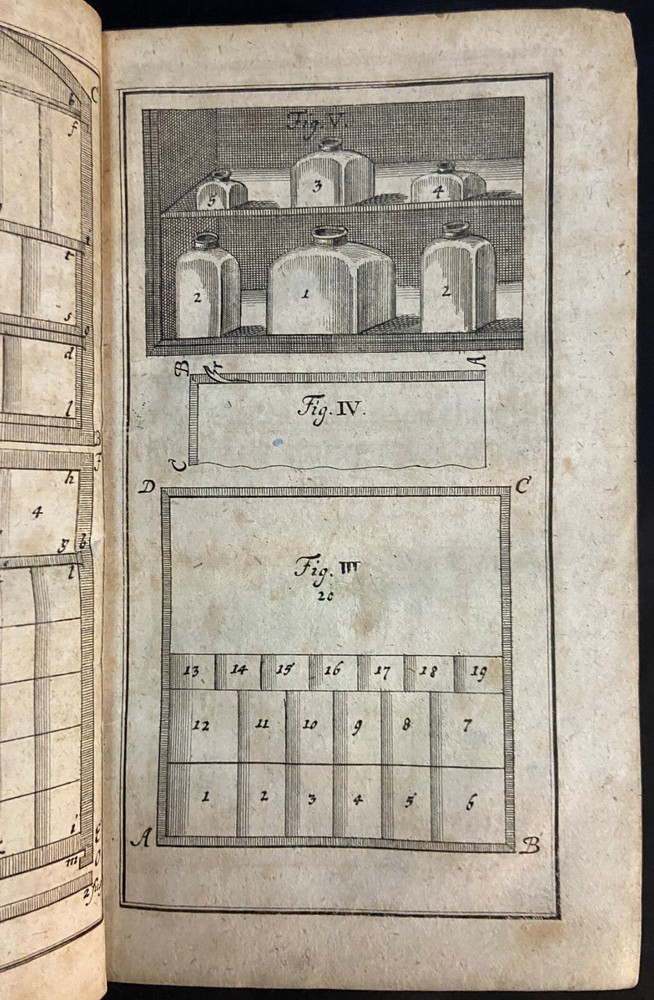 Fig. V.
5 3 4
2 1 2
B r A
Fig. IV.
C
D C
Fig. III
20
13 14 15 16 17 18 19
12 11 10 9 8 7
1 2 3 4 5 6
A B
t C
f
i
t
s e
d
l
B
F
h
4
y b
l
i E
m O